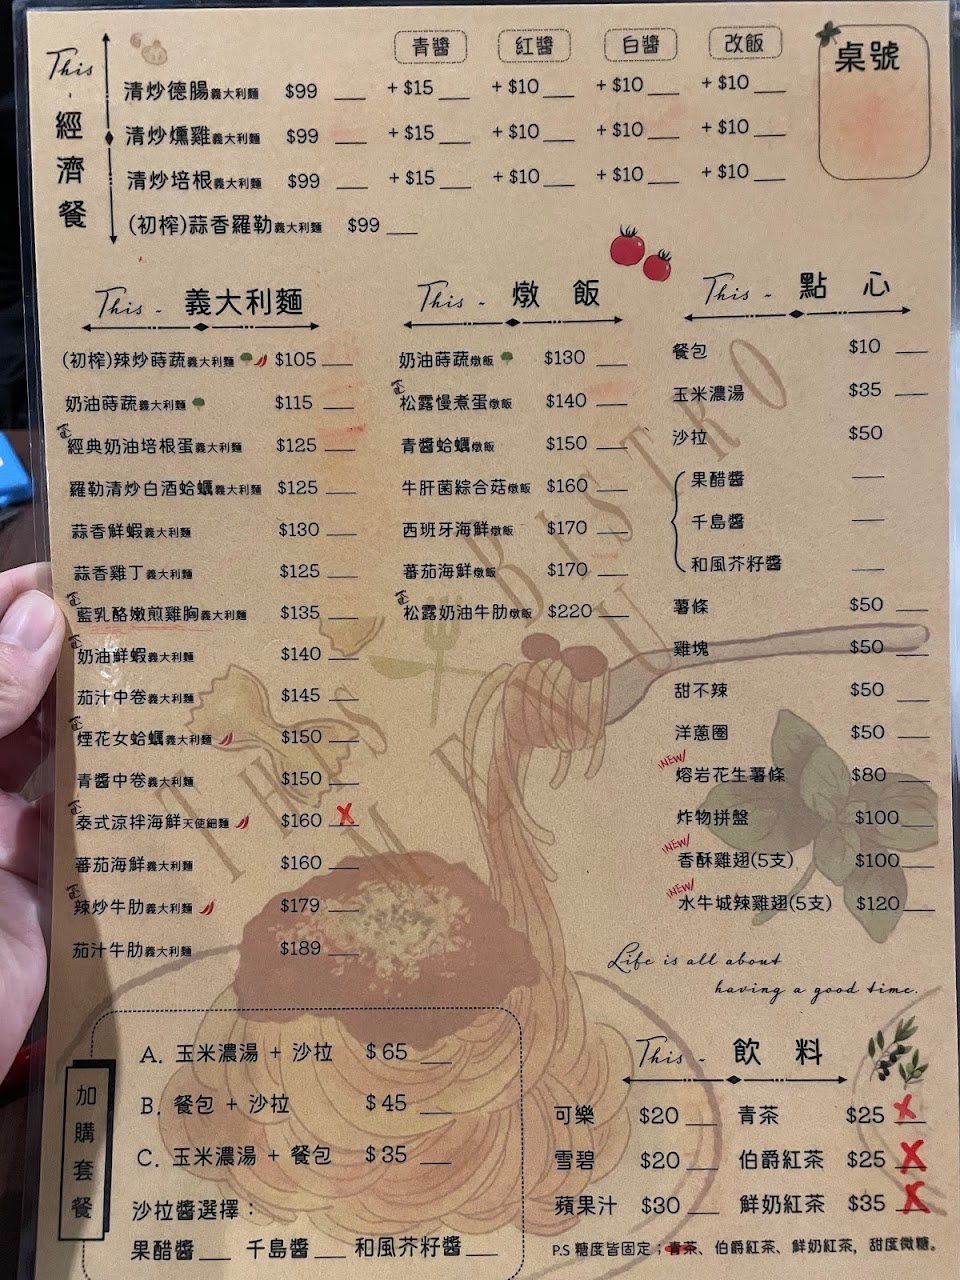 This - 經濟餐
青醬 紅醬 白醬 改飯
桌號
清炒德腸義大利麵 $99 ___ + $15 ___ + $10 ___ + $10 ___ + $10 ___
清炒燻雞義大利麵 $99 ___ + $15 ___ + $10 ___ + $10 ___ + $10 ___
清炒培根義大利麵 $99 ___ + $15 ___ + $10 ___ + $10 ___ + $10 ___
(初榨)蒜香羅勒義大利麵 $99 ___
This - 義大利麵
(初榨)辣炒蒔蔬義大利麵 $105 ___
奶油蒔蔬義大利麵 $115 ___
經典奶油培根蛋義大利麵 $125 ___
羅勒清炒白酒蛤蠣義大利麵 $125 ___
蒜香鮮蝦義大利麵 $130 ___
蒜香雞丁義大利麵 $125 ___
藍乳酪嫩煎雞胸義大利麵 $135 ___
奶油鮮蝦義大利麵 $140 ___
茄汁中卷義大利麵 $145 ___
煙花女蛤蠣義大利麵 $150 ___
青醬中卷義大利麵 $150 ___
泰式涼拌海鮮天使細麵 $160 X
蕃茄海鮮義大利麵 $160 ___
辣炒牛肋義大利麵 $179 ___
茄汁牛肋義大利麵 $189 ___
This - 燉飯
奶油蒔蔬燉飯 $130 ___
松露慢煮蛋燉飯 $140 ___
青醬蛤蠣燉飯 $150 ___
牛肝菌綜合菇燉飯 $160 ___
西班牙海鮮燉飯 $170 ___
蕃茄海鮮燉飯 $170 ___
松露奶油牛肋燉飯 $220 ___
This - 點心
餐包 $10 ___
玉米濃湯 $35 ___
沙拉 $50
果醋醬 ___
千島醬 ___
和風芥籽醬 ___
薯條 $50 ___
雞塊 $50 ___
甜不辣 $50 ___
洋蔥圈 $50 ___
NEW/ 熔岩花生薯條 $80 ___
炸物拼盤 $100 ___
NEW/ 香酥雞翅(5支) $100 ___
NEW/ 水牛城辣雞翅(5支) $120 ___
THIS BISTRO
MENU
Life is all about
having a good time.
加購套餐
A. 玉米濃湯 + 沙拉 $ 65 ___
B. 餐包 + 沙拉 $ 45 ___
C. 玉米濃湯 + 餐包 $ 35 ___
沙拉醬選擇：
果醋醬 ___ 千島醬 ___ 和風芥籽醬 ___
This - 飲料
可樂 $20 ___ 青茶 $25 X
雪碧 $20 ___ 伯爵紅茶 $25 X
蘋果汁 $30 ___ 鮮奶紅茶 $35 X
P.S 糖度皆固定；青茶、伯爵紅茶、鮮奶紅茶, 甜度微糖。